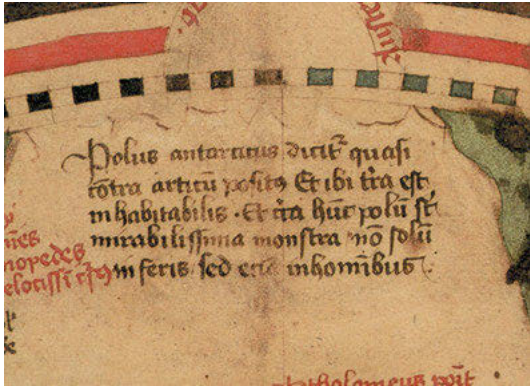 Polus antarticus dicit᷑ quasi
cōtra articū positꝰ Et ibi tr̄a est
inhabitabilis · Et cͥca hūc polū st̄
mirabilissima monstra nō solū
in feris sed eciā in homībus
nopedes
elocissī